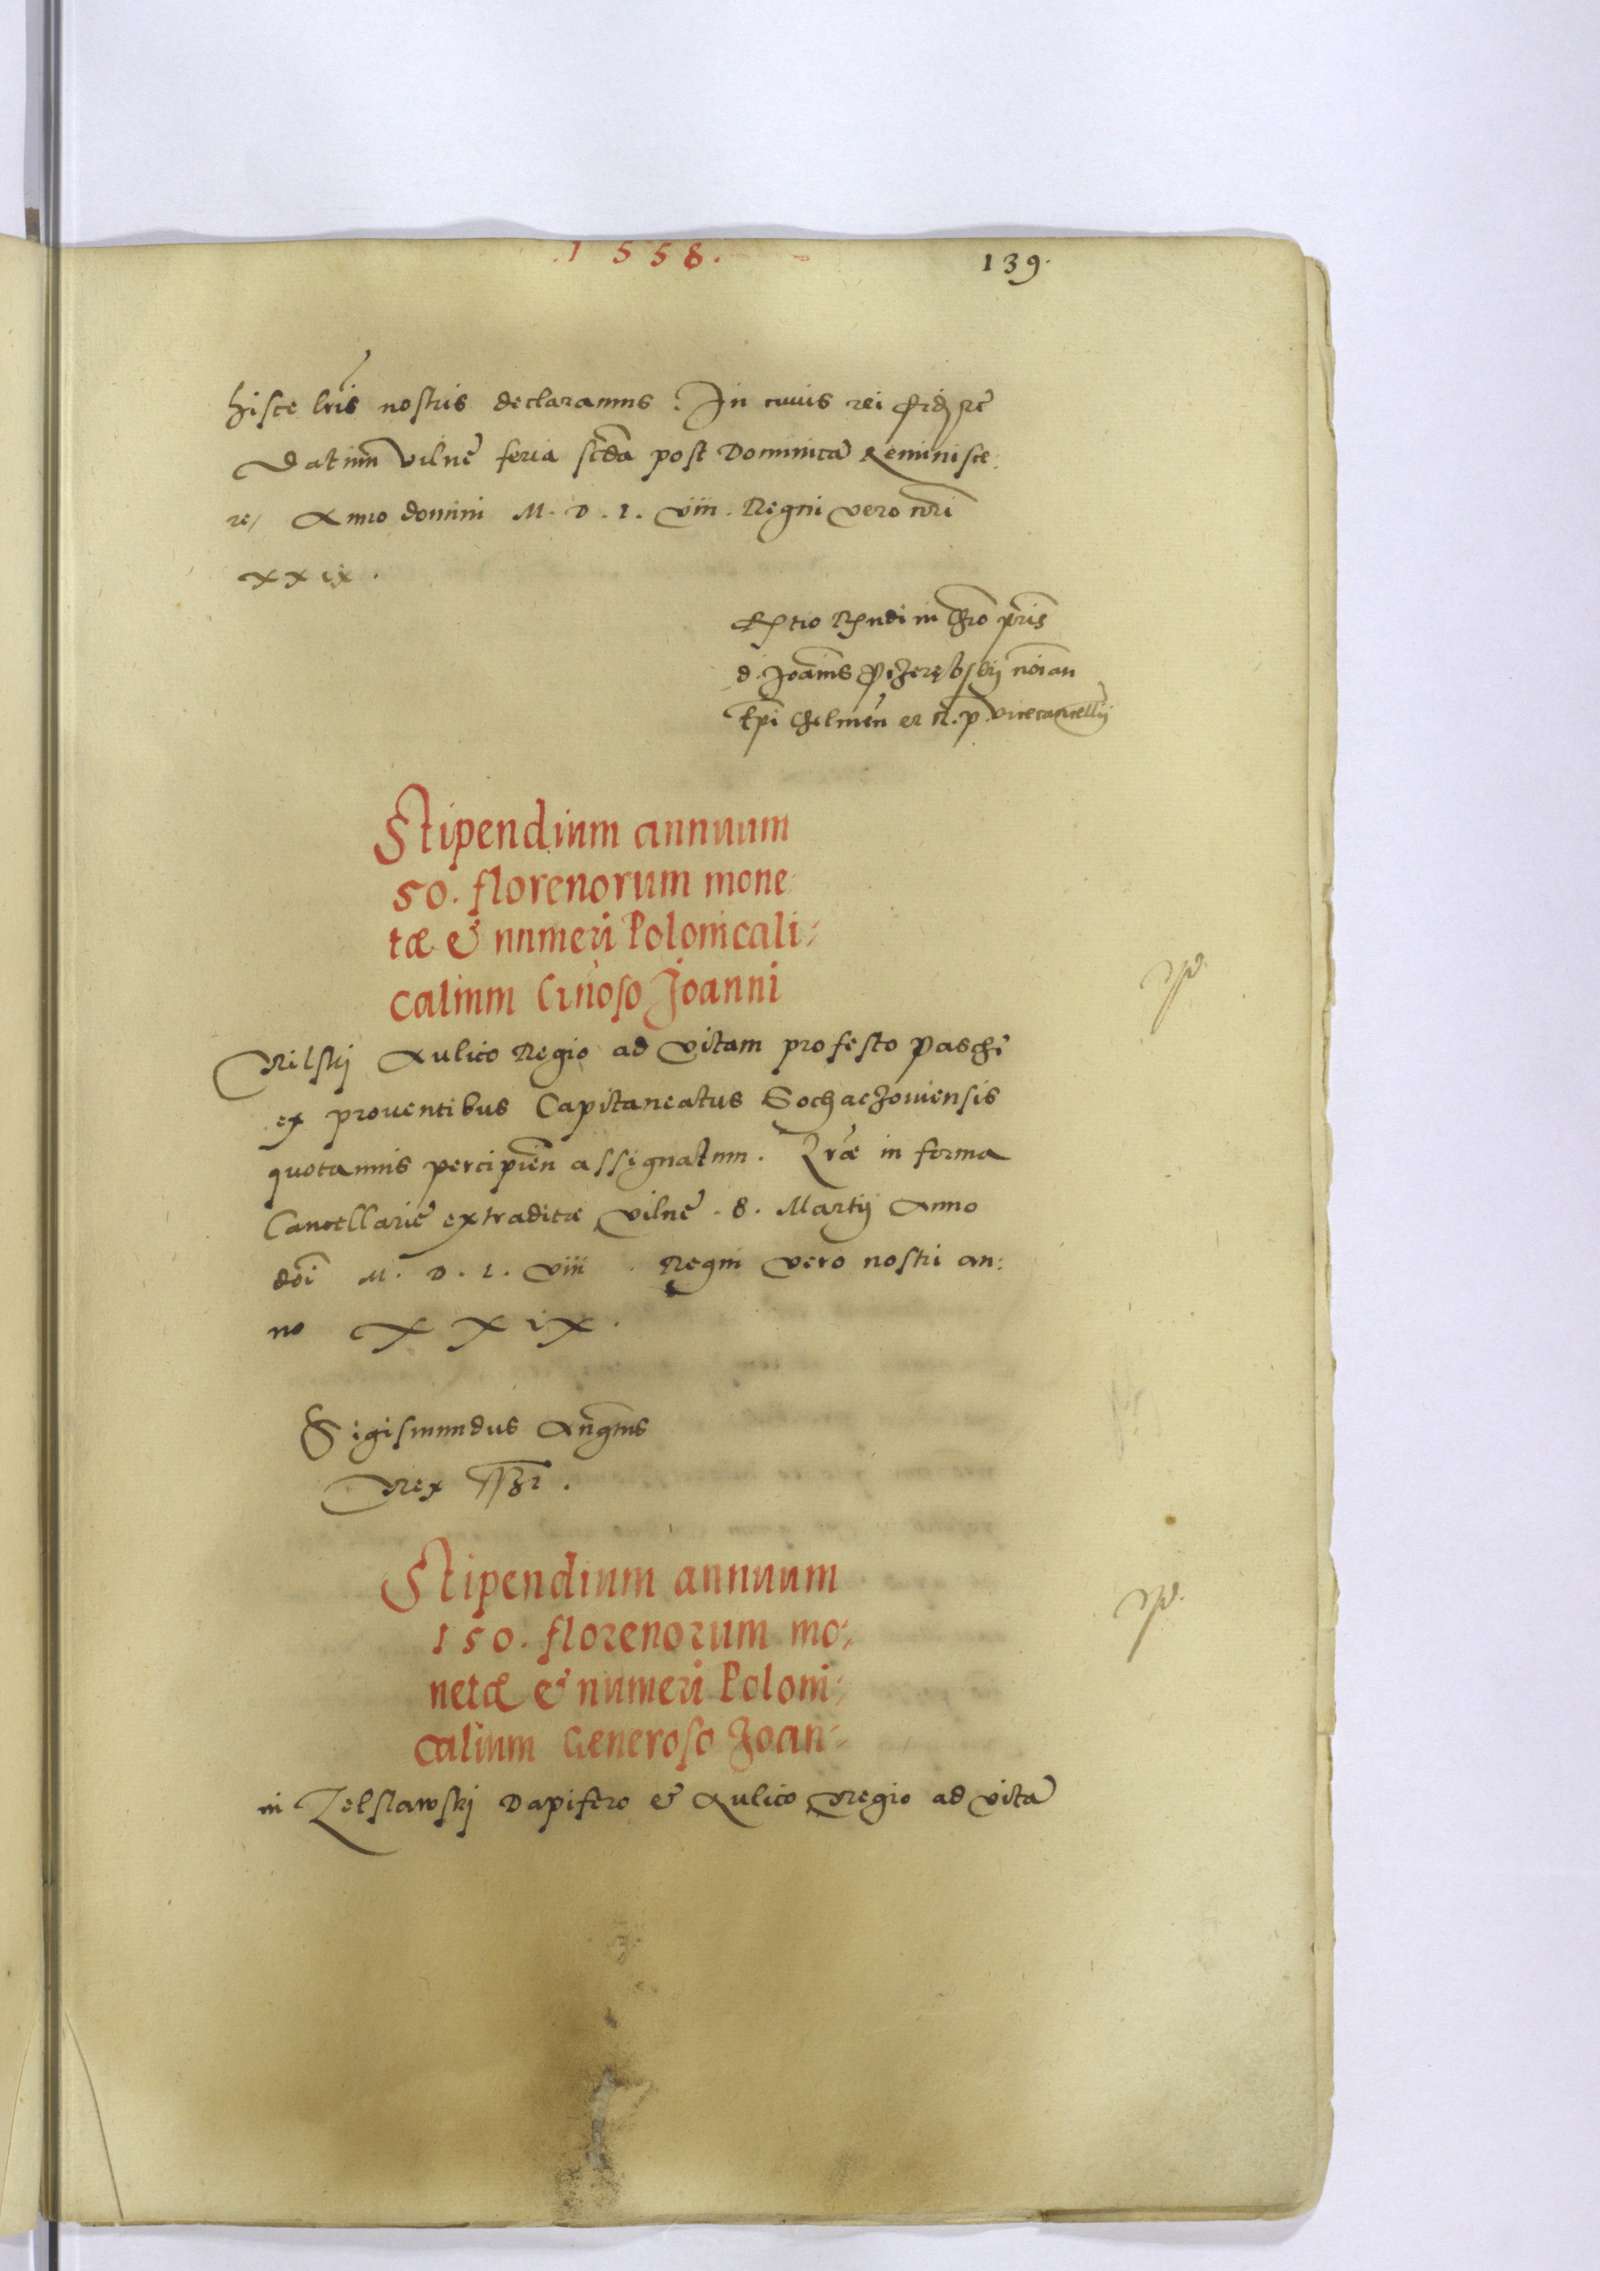 .1558. 139.
hisce lris nostris declaramus. In cuius rei fid. etc
Datum Vilne feria scda post Dominica Reminisce:
re/ Anno domini M. D. L. viii. Regni vero nri
xxix.
Rtio Rndi in Chro pris
d. Joannis Przerębskij noian
Epi Chelmen et R. P. vicecancellij
Stipendium annuum
50. florenorum mone
tæ & numeri Polonicali:
calium Gnoso Joanni
Rilskj Aulico Regio ad vitam pro festo Pasche
ex prouentibus Capitaneatus Sochaczouiensis
quotannis percipien assignatum. Lræ in forma
Cancellarie extraditæ Vilne. 8. Martij Anno
doi M. D. L. viii. Regni vero nostri an:
no XXiX.
Sigismundus Augtus
Rex
Stipendium annuum
150. florenorum mo:
netæ & numeri Poloni:
calium Generoso Joan=
ni Zelslawskj Dapifero & Aulico Regio ad vita